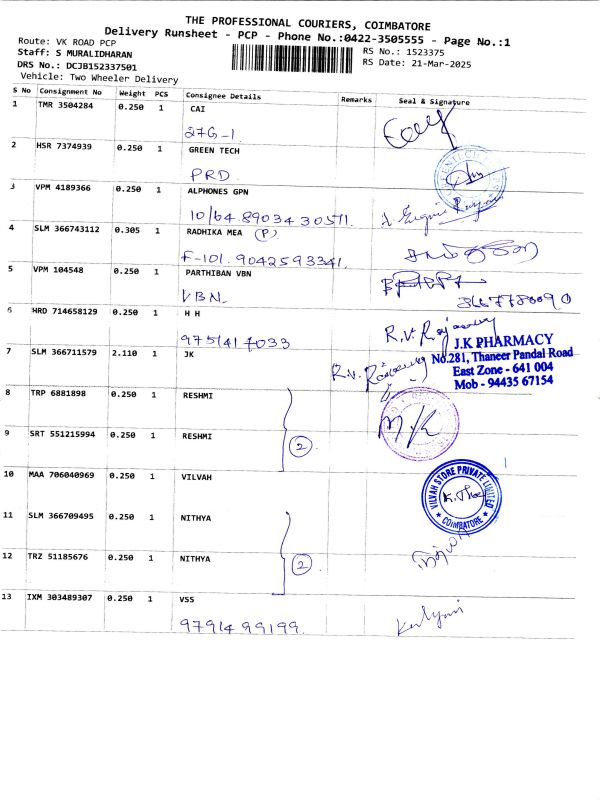 THE PROFESSIONAL COURIERS, COIMBATORE
Delivery Runsheet - PCP - Phone No.:0422-3505555 - Page No.:1
Route: VK ROAD PCP
Staff: S MURALIDHARAN
DRS No.: DCJB152337501
Vehicle: Two Wheeler Delivery
RS No.: 1523375
RS Date: 21-Mar-2025
S No Consignment No Weight PCS Consignee Details Remarks Seal & Signature
1 TMR 3504284 0.250 1 CAI
27G-1
2 HSR 7374939 0.250 1 GREEN TECH
PRD
3 VPM 4189366 0.250 1 ALPHONES GPN
10/64.8903430571.
4 SLM 366743112 0.305 1 RADHIKA MEA (P)
F-101. 9042593341.
5 VPM 104548 0.250 1 PARTHIBAN VBN
VBN
6 HRD 714658129 0.250 1 H H
9751417033
R.V. Rajaswamy
7 SLM 366711579 2.110 1 JK
J.K PHARMACY
No.281, Thaneer Pandal Road
East Zone - 641 004
Mob - 94435 67154
8 TRP 6881898 0.250 1 RESHMI
9 SRT 551215994 0.250 1 RESHMI
2
M/K
10 MAA 706040969 0.250 1 VILVAH
VILVAH STORE PRIVATE LIMITED
COIMBATORE
11 SLM 366709495 0.250 1 NITHYA
12 TRZ 51185676 0.250 1 NITHYA
2
13 IXM 303489307 0.250 1 VSS
9791499199
Kalyani